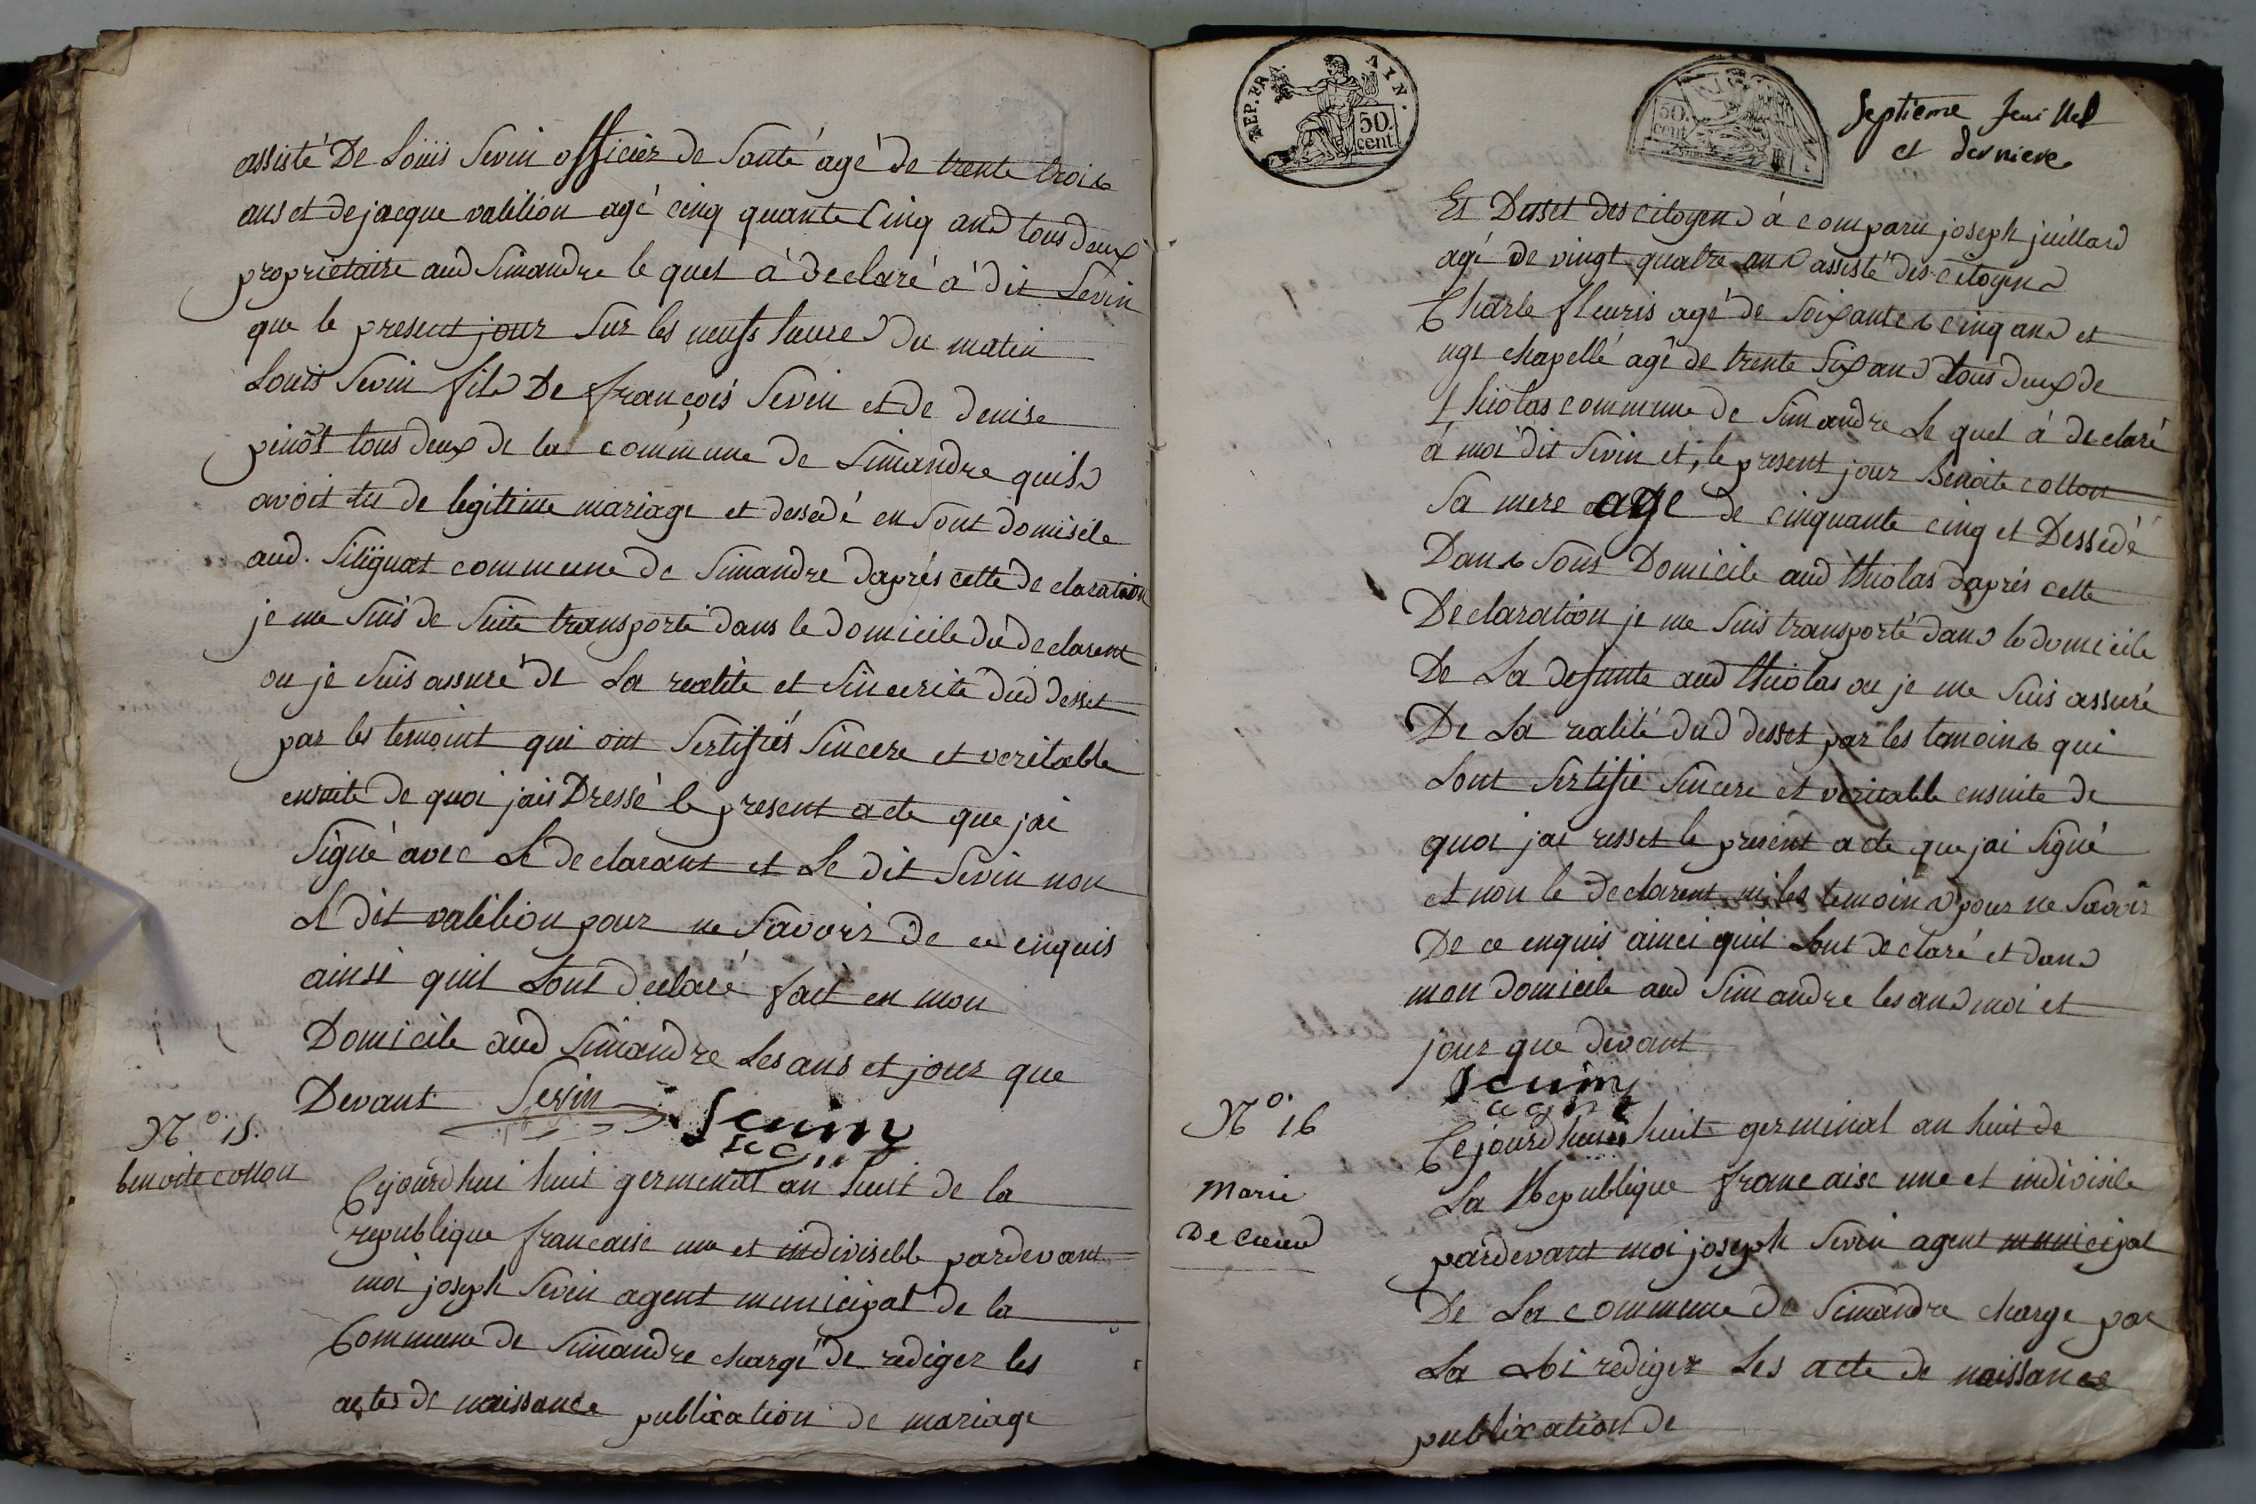 assisté De Loüis Sevin officier de Santé agé de trente trois
ans et de jacque valilion agé cinq quante Cinq ans tous deux
proprietaire aud Simandre le quel à declaré à dit Sevin
que le present jour Sur les neufs heures du matin
Louis Sevin fils De françois Sevin et de denise
pinôt tous deux de la commune de Simandre quils
avoit eu de legitime mariage et dessedé en Sont domisile
aud. Silignat commune de Simandre daprés cette declaration
je me Suis de Suite transporté dans le domicile du declarent
ou je Suis assuré de La realité et Sincerité dud desset
par les temoint qui ont Sertifiés Sincere et veritable
ensuite de quoi jais Dressé le present acte que jai
Signé avec Le declarant et Le dit Sevin non
Le dit valilion pour ne Savoir de ce enquis
ainsi quil Lont declaré fait en mon
Domicile aud Simandre Les ans et jour que
Devant Sevin Sevin
N° 15.
benoite collon
Cejourdhui huit germinal an huit de la
republique francaise une et indivisible pardevant
moi joseph Sevin agent municipal de la
Commune de Simandre chargé de rediger les
actes de naissance publication de mariage
REP. FRA. AIN.
50 cent.
50 cent.
Septieme feuillet
et derniere
Et Desset des citoyens à comparu joseph juillard
agé de vingt quatre ans assisté des citoyens
Charle fleuris agé de Soixante cinq ans et
chapellé agé de trente Six ans tous deux de
thiolas commune de Simandre Le quel à declaré
à moi dit Sevin et, le present jour Benoite collon
Sa mere age de cinquante cinq et Dessedé
Dans Sons Domicile aud thiolas daprés cette
Declaration je me Suis transporté dans le domicile
De La defunte aud thiolas ou je me Suis assuré
De La realité dud desset par les temoins qui
Lont Sertifié Sincere et veritable ensuite de
quoi jai resset le present acte que jai Signé
et non le declarent ni les temoins pour ne Savoir
De ce enquis ainci quil Lont declaré et dans
mon domicile aud Simandre les ans moi et
jour que devant
Sevin
N° 16
Marie
Cejourdhui huit germinal an huit de
La Republique francaise une et indivisile
pardevant moi joseph Sevin agent municipal
De La commune de Simandre charge par
La Loi rediger Les acte de naissance
publixation de